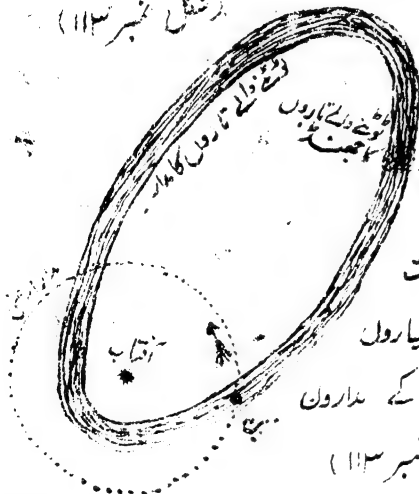 (شکل نمبر ۱۱۳)
ٹوٹنے والے تاروں کا مدار
ٹوٹنے والے تاروں
کا جھنڈ
آفتاب
یارول
کے مدارون
مبر ۱۱۳)